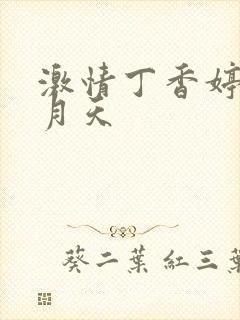 激情丁香婷
月天
葵二葉 紅三葉